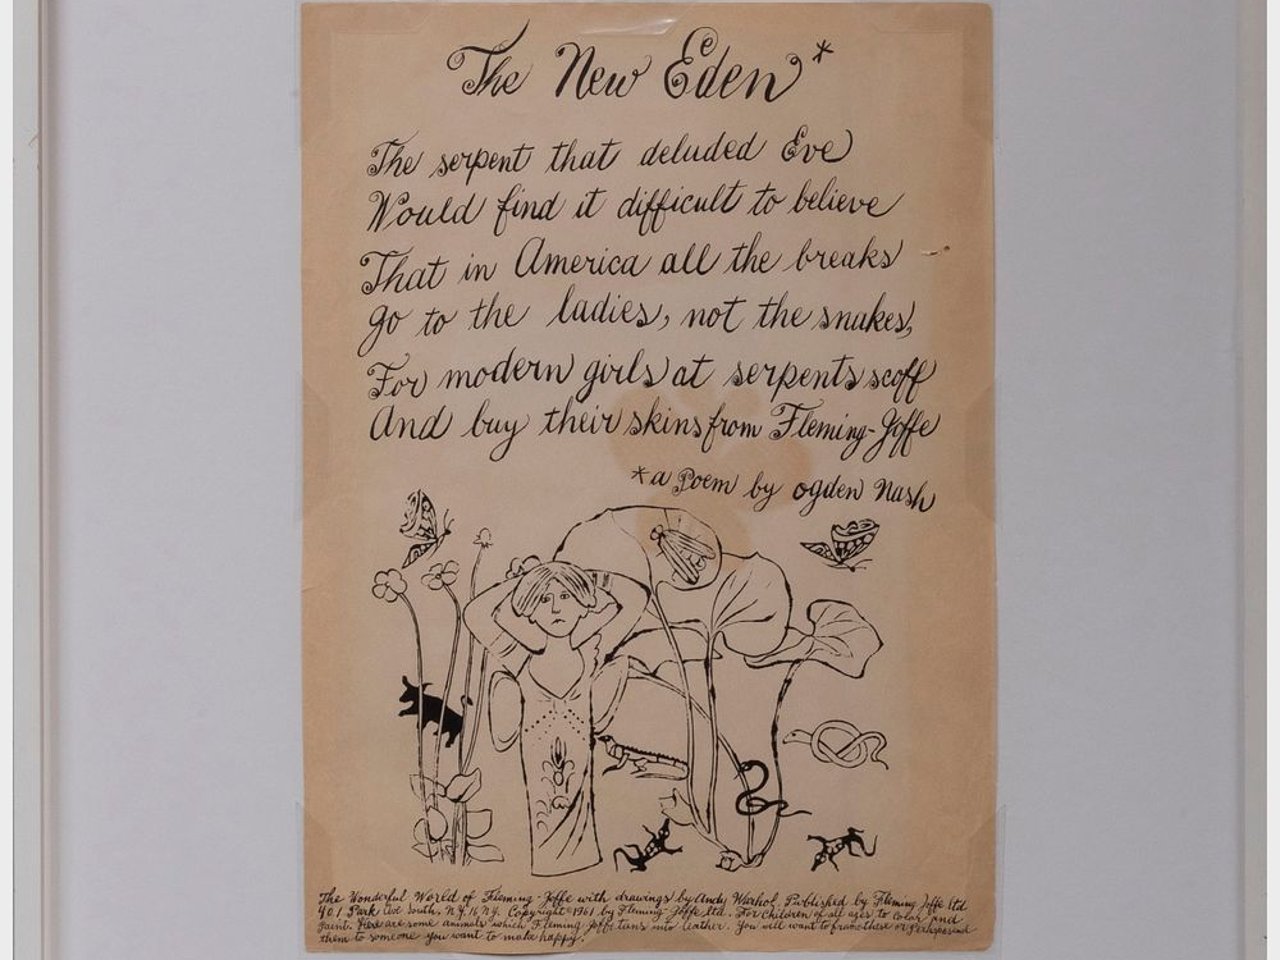 The New Eden*
The serpent that deluded Eve
Would find it difficult to believe
That in America all the breaks
Go to the ladies, not the snakes,
For modern girls at serpents scoff
And buy their skins from Fleming-Joffe
*a Poem by ogden Nash
The Wonderful World of Fleming-Joffe with drawings by Andy Warhol. Published by Fleming Joffe Ltd
401 Park Ave South, N.Y. 16 N.Y. Copyright © 1961 by Fleming-Joffe Ltd. For children of all ages to color and
paint. Here are some animals which Fleming Joffe turns into leather. You will want to frame these or perhaps send
them to someone you want to make happy.